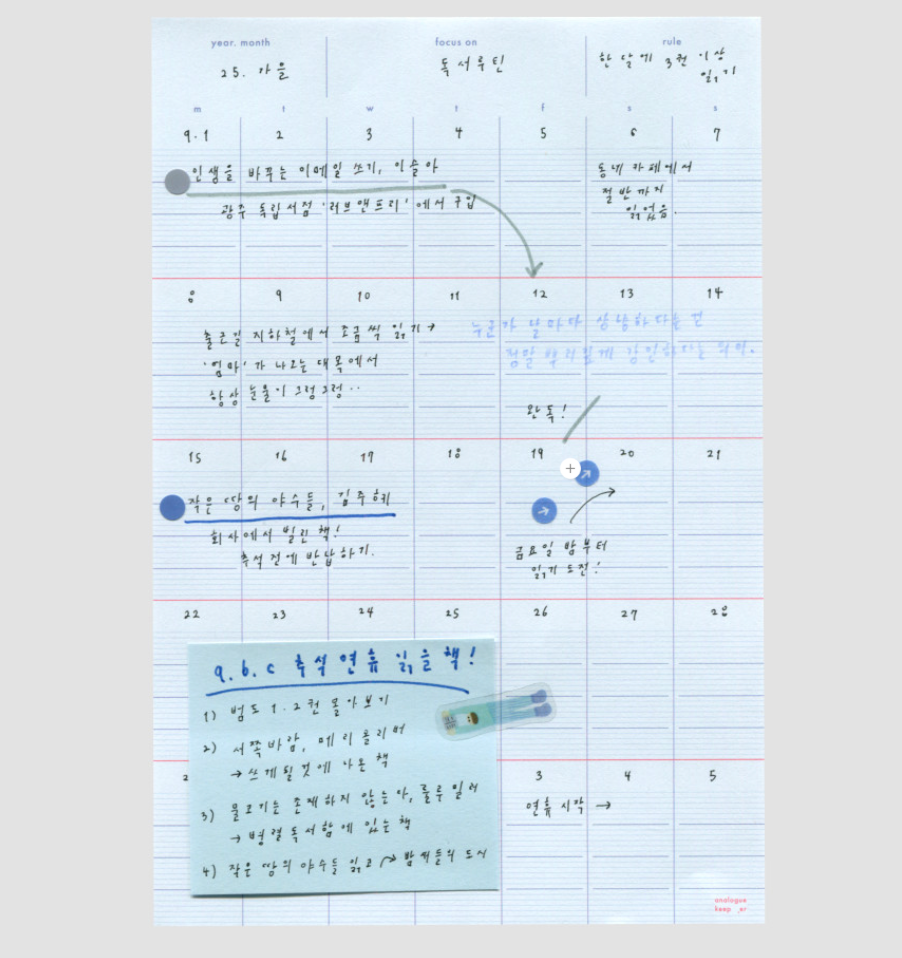 year. month
focus on
rule
25. 가을
독서루틴
한 달에 3권 이상
읽기
m t w t f s s
9.1 2 3 4 5 6 7
인생을 바꾸는 이메일 쓰기, 이슬아
광주 독립서점 '러브앤프리'에서 구입
동네 카페에서
절반까지
읽었음.
8 9 10 11 12 13 14
출근길 지하철에서 조금씩 읽기 →
'엄마'가 나오는 대목에서
항상 눈물이 그렁그렁..
누군가 날마다 상냥하다는 건
정말 부러
완독!
15 16 17 18 19 20 21
작은 땅의 야수들, 김주혜
회사에서 빌린 책!
추석 전에 반납하기.
금요일 밤부터
읽기 도전!
22 23 24 25 26 27 28
9.b.c 추석 연휴 읽을 책!
1) 범도 1.2권 몰아보기
2) 서쪽바람, 메리 올리버
→ 쓰게 될 것에 나온 책
3) 물고기는 존재하지 않는다, 룰루 밀러
→ 병렬독서함에 있는 책
4) 작은 땅의 야수들 읽고 밤새들의 도시
3 4 5
연휴 시작 →
analogue
keeper